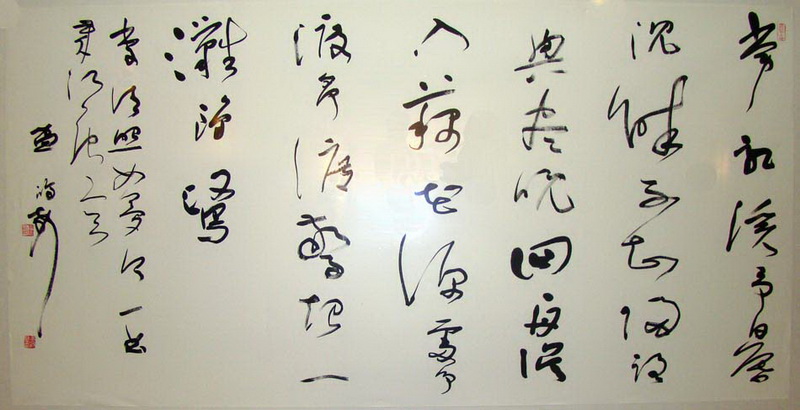 常記溪亭日暮
沉醉不知歸路
興盡晚回舟誤
入藕花深處爭
渡爭渡驚起一
灘鷗鷺
李清照如夢令一